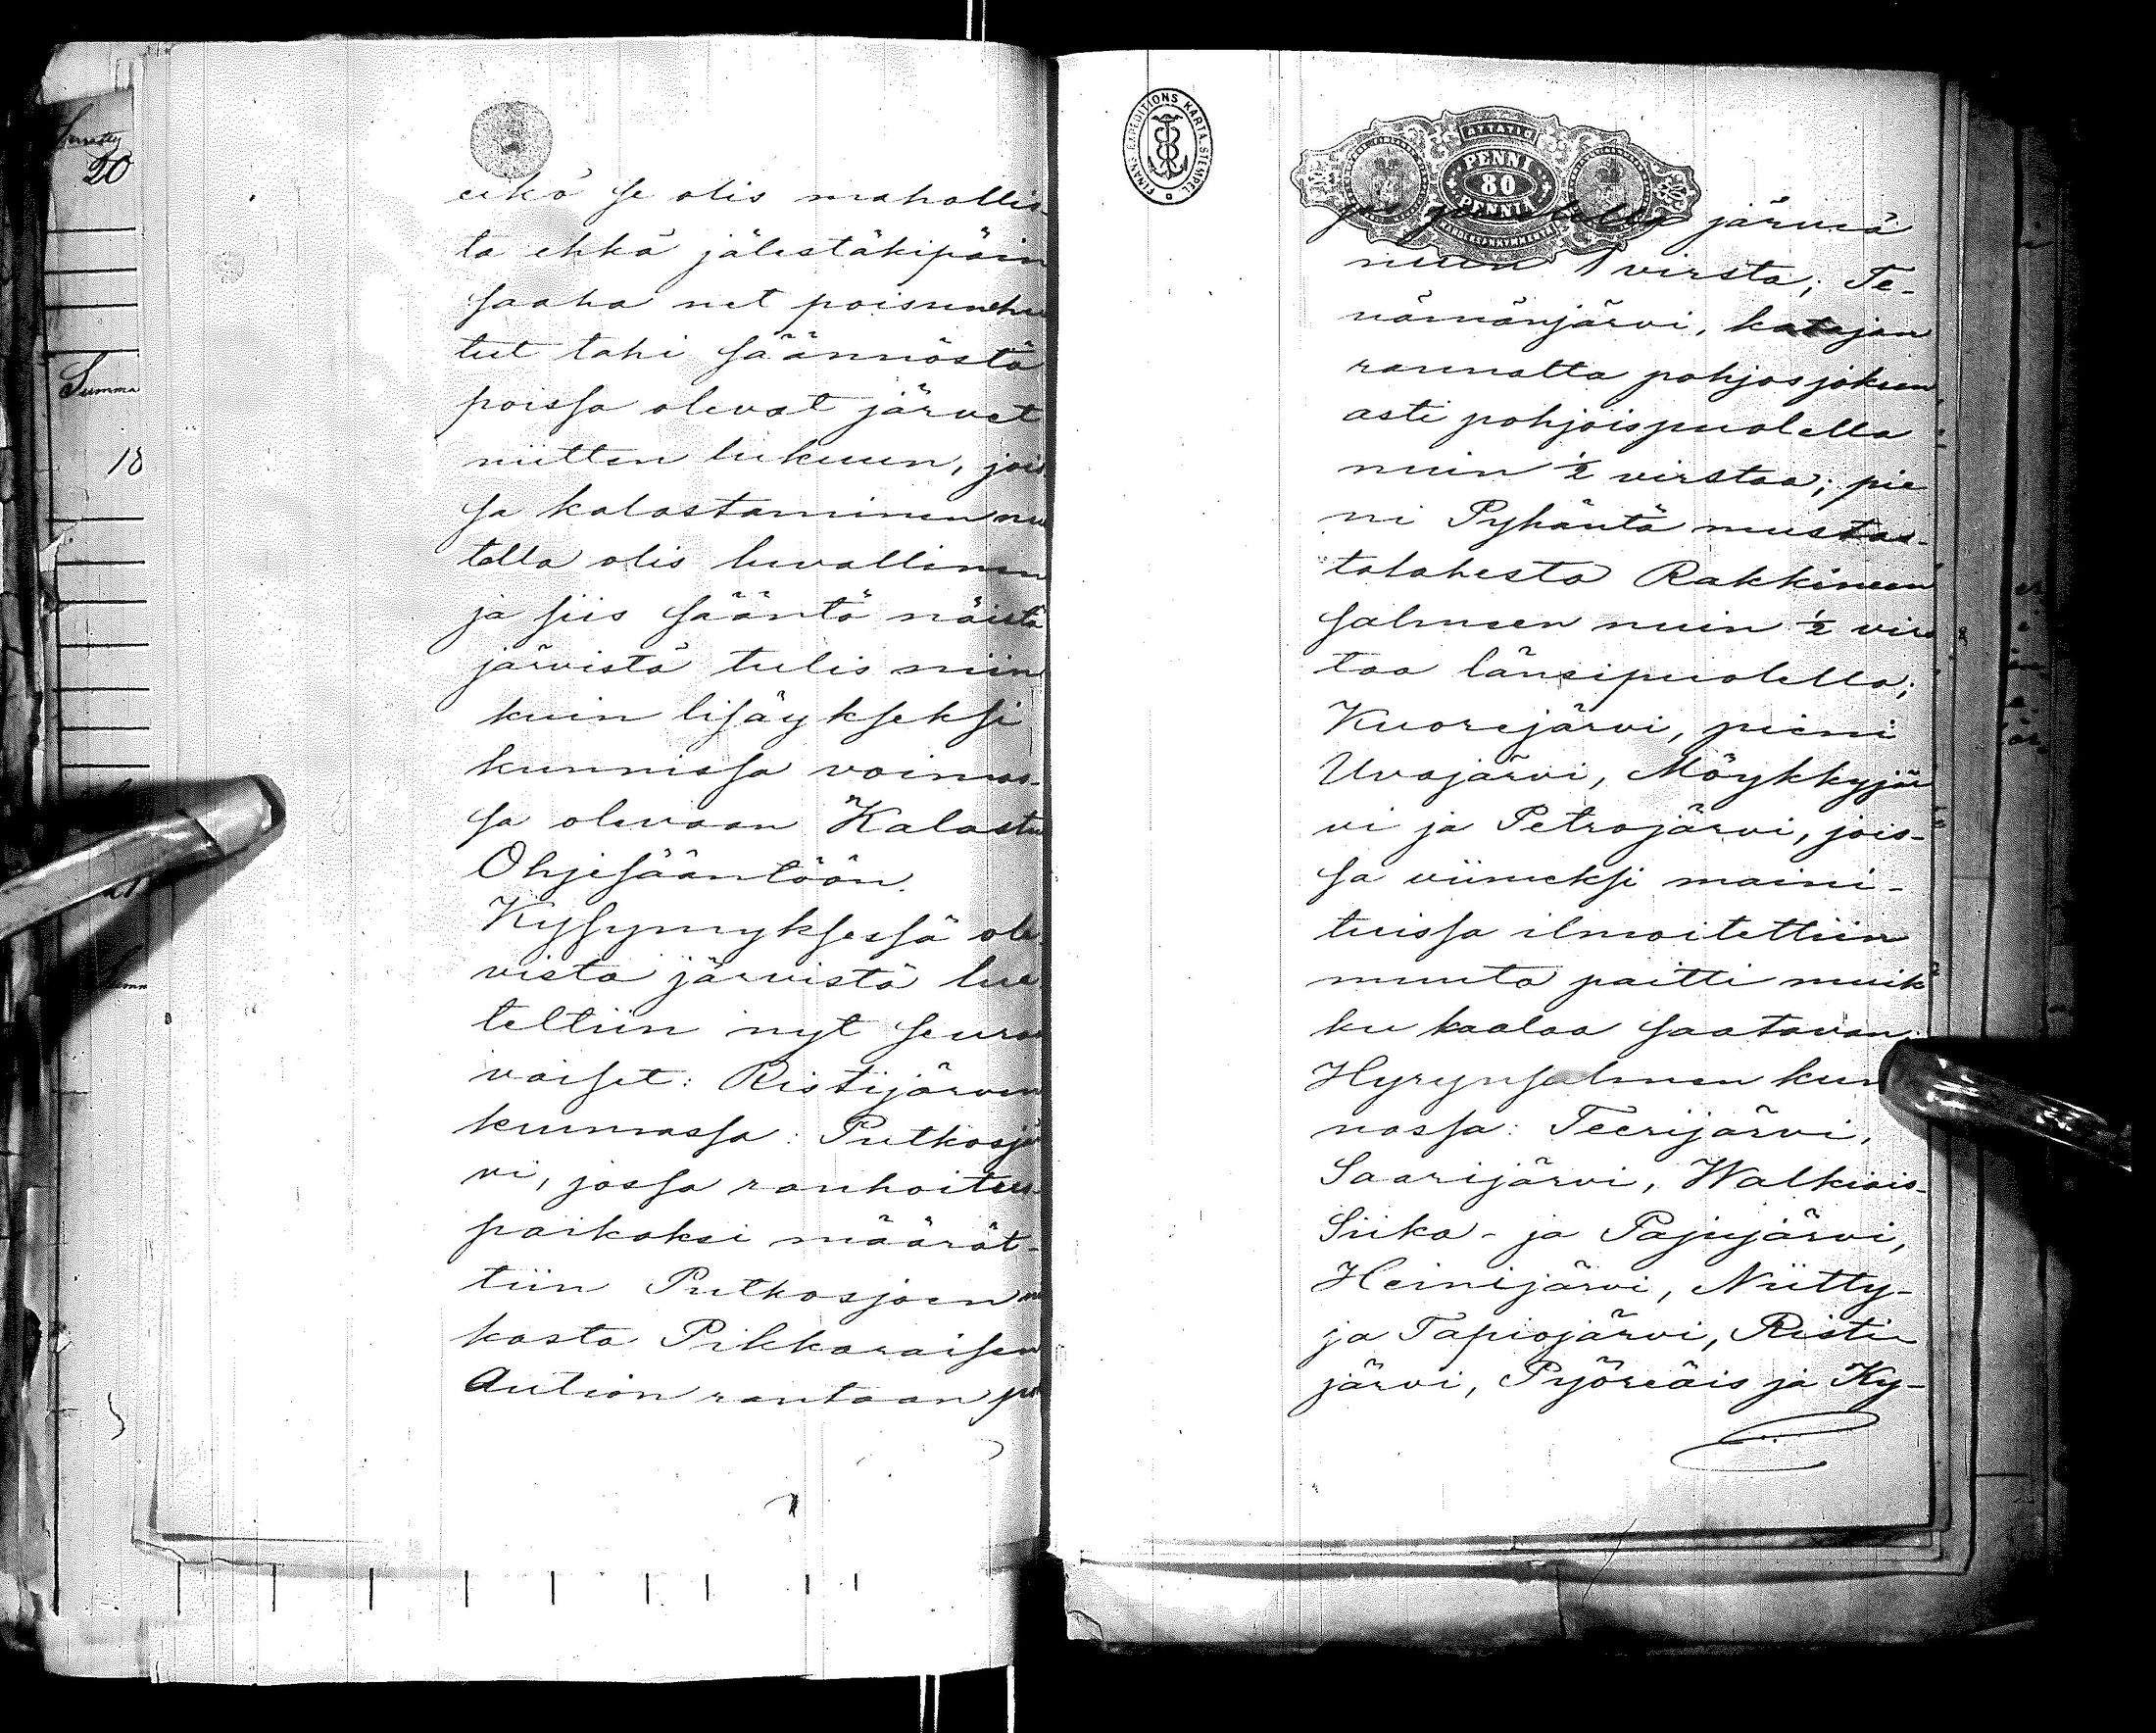 20
Summa
18
eikä se olis mahollis-
ta ehkä jälestäkipäin
saaha net poisunehu
tut tahi säännöstä
poissa olevat järvet
niitten lukuun, jois
sa kalastaminen nu
talla olis luvallinen
ja siis sääntö näistä
järvistä tulis niin
kuin lisäykseksi
kunnissa voimas-
sa olevaan "Kalastu
Ohjesääntöön.
Kysymyksessä ole
vista järvistä lue
teltiin nyt seura
vaiset: Ristijärven
kunnassa: Putkosjä
vi, jossa rauhoitus-
paikaksi määrät-
tiin Putkosjoen
kasta Pikkaraisen
Aution rantaan
FINANS EXPEDITIONS KARTA STEMPEL
ÅTTATIO
PENNI
80
PENNIÄ
järveä
nuin 1 virsta; Te-
nämänjärvi, katajan
rannatta pohjosjokeen
asti pohjoispuolella
nuin ½ virstaa; pie
ni Pyhäntä mustas-
talahesta Rakkineen
salmeen nuin ½ virs
taa länsipuolella;
Kuorejärvi, pieni
Uvajärvi, Möykkyjär
vi ja Petrajärvi, jois-
sa viimeksi maini-
tuissa ilmoitettiin
muuta paitti muik
ku kaalaa saatavan;
Hyrynsalmen kun
nassa: Teerijärvi,
Saarijärvi, Walkiais-
Siika- ja Pajujärvi,
Heinijärvi, Niitty-
ja Tapiojärvi, Risti
järvi, Pyöreäis ja Ky-